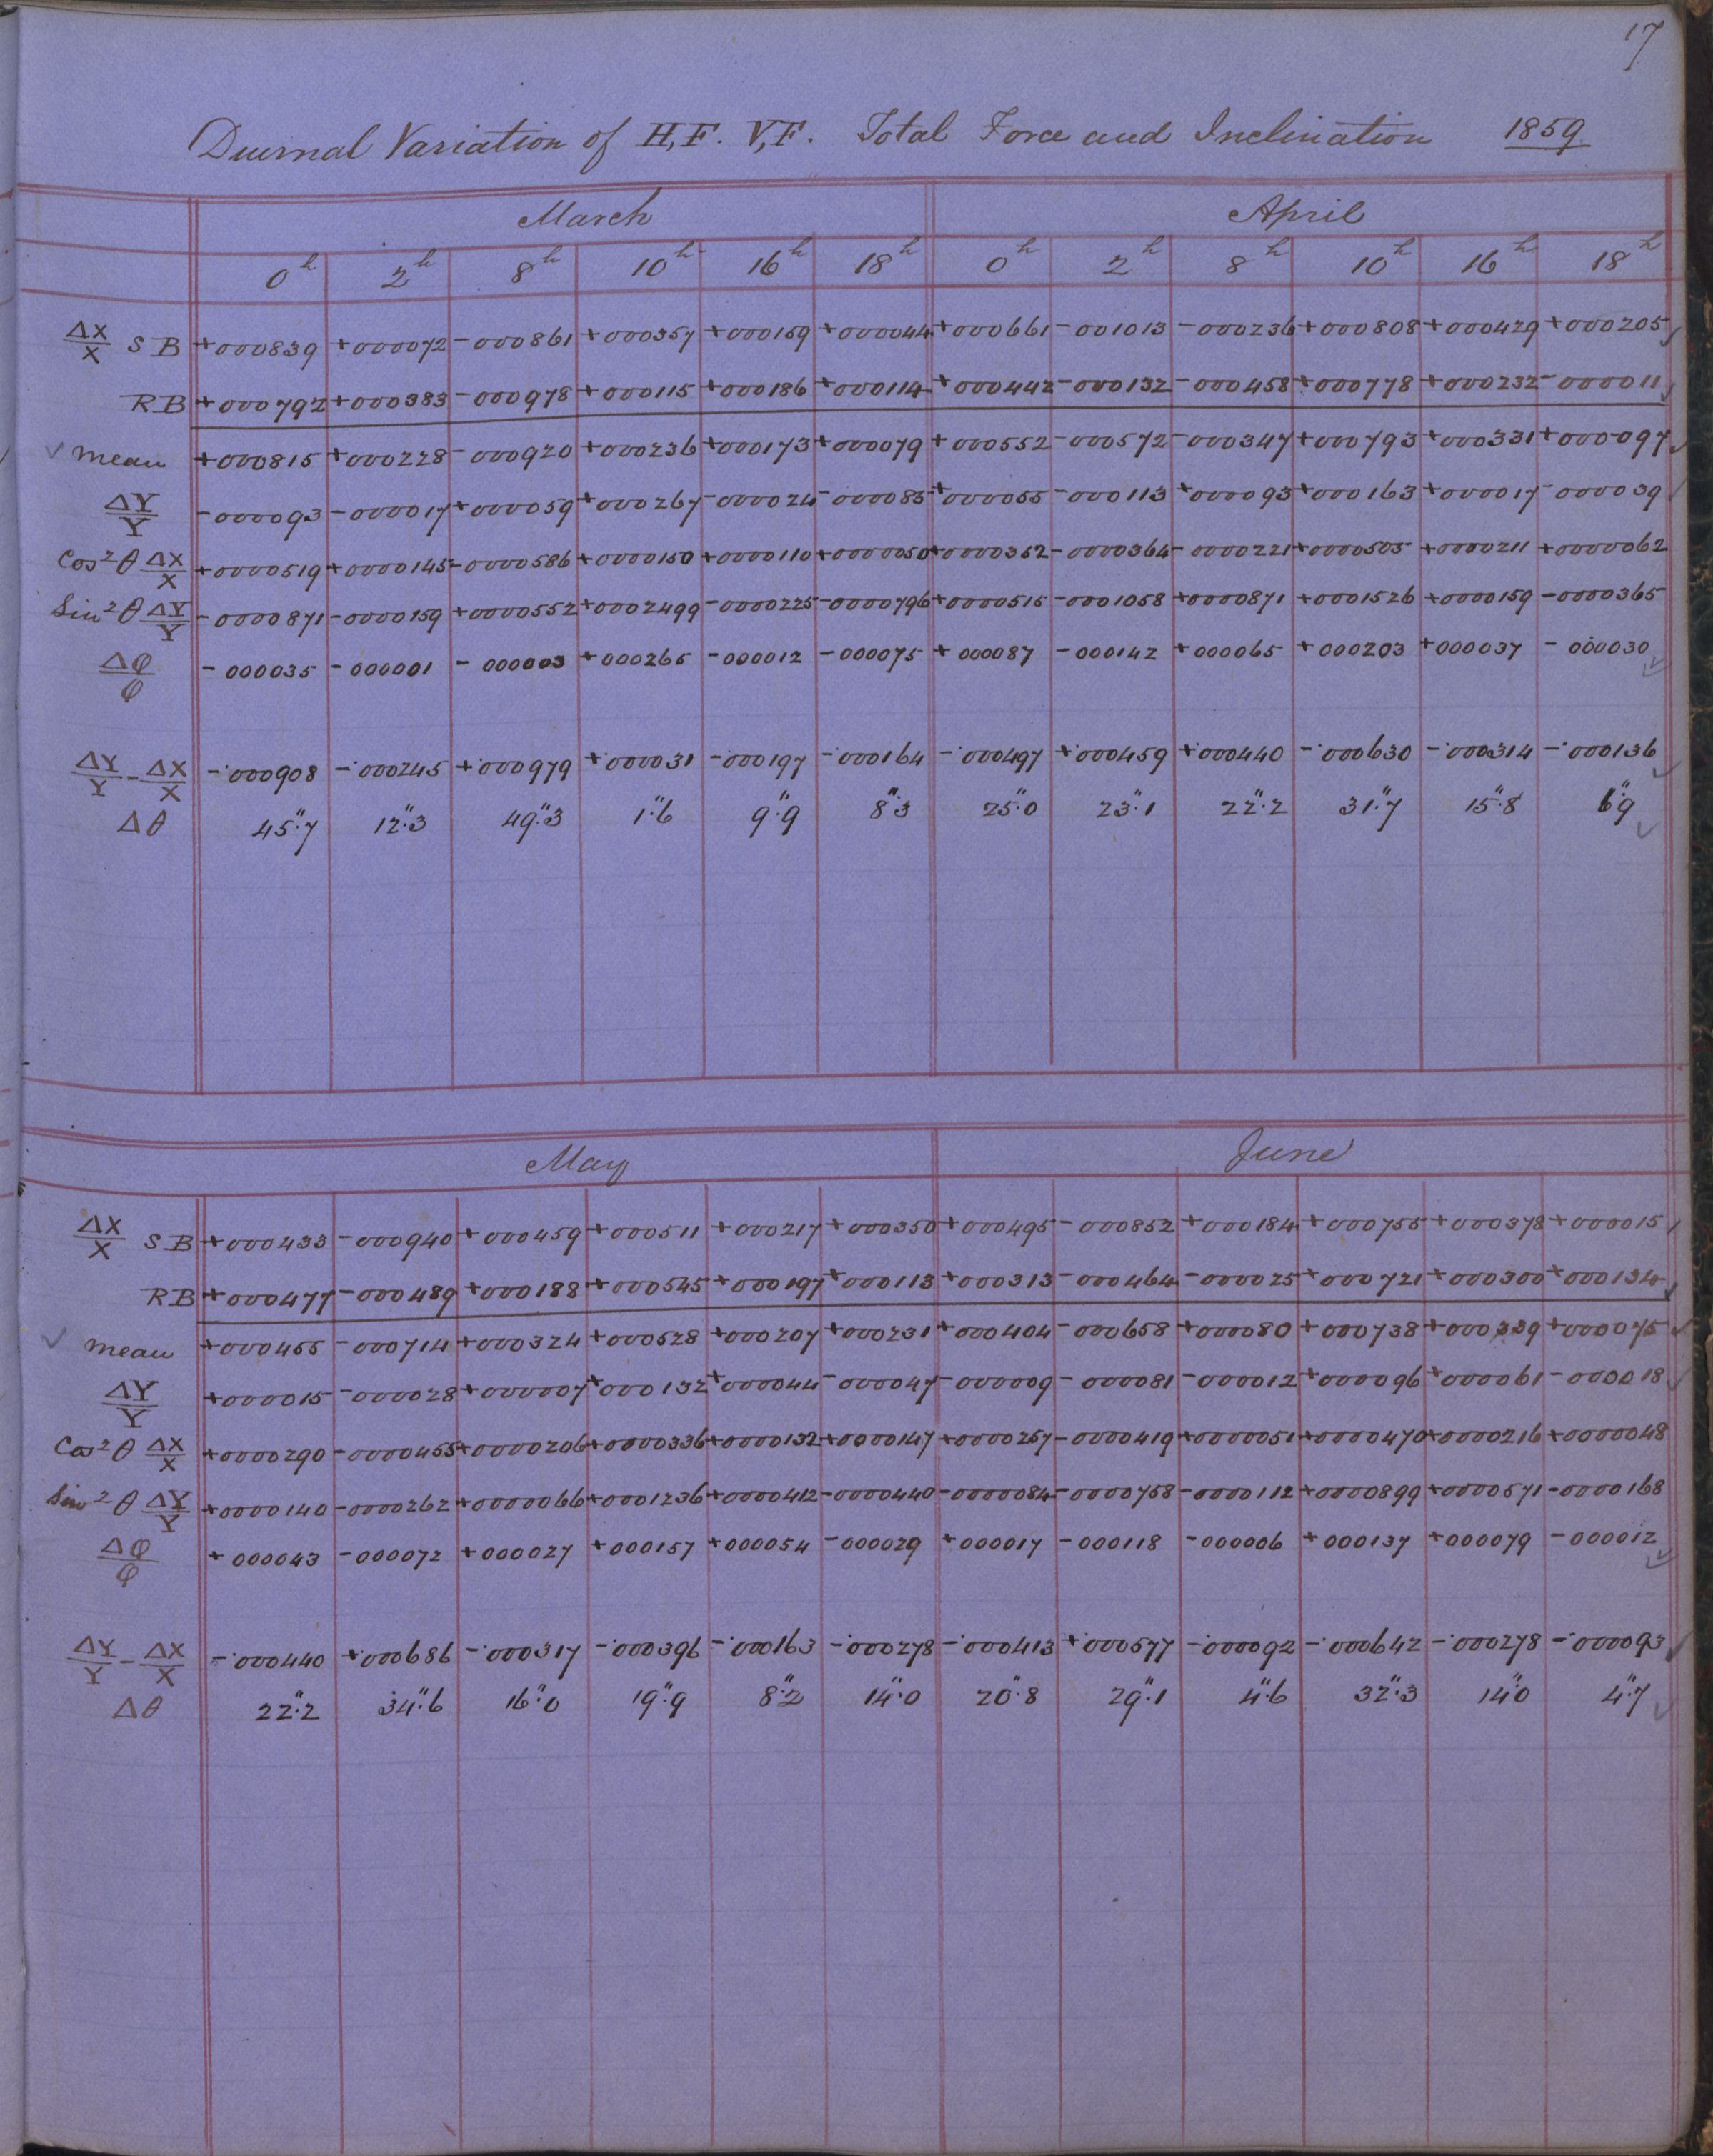 17
Diurnal Variation of H,F. V,F. Total Force and Inclination 1859
March April
0h 2h 8h 10h 16h 18h 0h 2h 8h 10h 16h 18h
ΔX/X SB +000839 +000072 -000861 +000357 +000159 +000044 +000661 -001013 -000236 +000808 +000429 +000205
RB +000792 +000383 -000978 +000115 +000186 +000114 +000442 -000132 -000458 +000778 +000232 -000011
mean +000815 +000228 -000920 +000236 +000173 +000079 +000552 -000572 -000347 +000793 +000331 +000097
ΔY/Y -000093 -000017 +000059 +000267 -000024 -000085 +000055 -000113 +000093 +000163 +000017 -000039
Cos²θ ΔX/X +0000519 +0000145 -0000586 +0000150 +0000110 +0000050 +0000352 -0000364 -0000221 +0000505 +0000211 +0000062
Sin²θ ΔY/Y -0000871 -0000159 +0000552 +0002499 -0000225 -0000796 +0000515 -0001058 +0000871 +0001526 +0000159 -0000365
Δφ/φ -000035 -000001 -000003 +000265 -000012 -000075 +000087 -000142 +000065 +000203 +000037 -000030
ΔY/Y - ΔX/X -·000908 -·000245 +·000979 +·000031 -·000197 -·000164 -·000497 +·000459 +·000440 -·000630 -·000314 -·000136
Δθ 45".7 12".3 49".3 1".6 9".9 8".3 25".0 23".1 22".2 31".7 15".8 6".9
May June
ΔX/X SB +000433 -000940 +000459 +000511 +000217 +000350 +000495 -000852 +000184 +000755 +000378 +000015
RB +000477 -000489 +000188 +000545 +000197 +000113 +000313 -000464 -000025 +000721 +000300 +000134
mean +000455 -000714 +000324 +000528 +000207 +000231 +000404 -000658 +000080 +000738 +000339 +000075
ΔY/Y +000015 -000028 +000007 +000132 +000044 -000047 -000009 -000081 -000012 +000096 +000061 -000018
Cos²θ ΔX/X +0000290 -0000455 +0000206 +0000336 +0000132 +0000147 +0000257 -0000419 +0000051 +0000470 +0000216 +0000048
Sin²θ ΔY/Y +0000140 -0000262 +0000066 +0001236 +0000412 -0000440 -0000084 -0000758 -0000112 +0000899 +0000571 -0000168
Δφ/φ +000043 -000072 +000027 +000157 +000054 -000029 +000017 -000118 -000006 +000137 +000079 -000012
ΔY/Y - ΔX/X -·000440 +·000686 -·000317 -·000396 -·000163 -·000278 -·000413 +·000577 -·000092 -·000642 -·000278 -·000093
Δθ 22".2 34".6 16".0 19".9 8".2 14".0 20".8 29".1 4".6 32".3 14".0 4".7